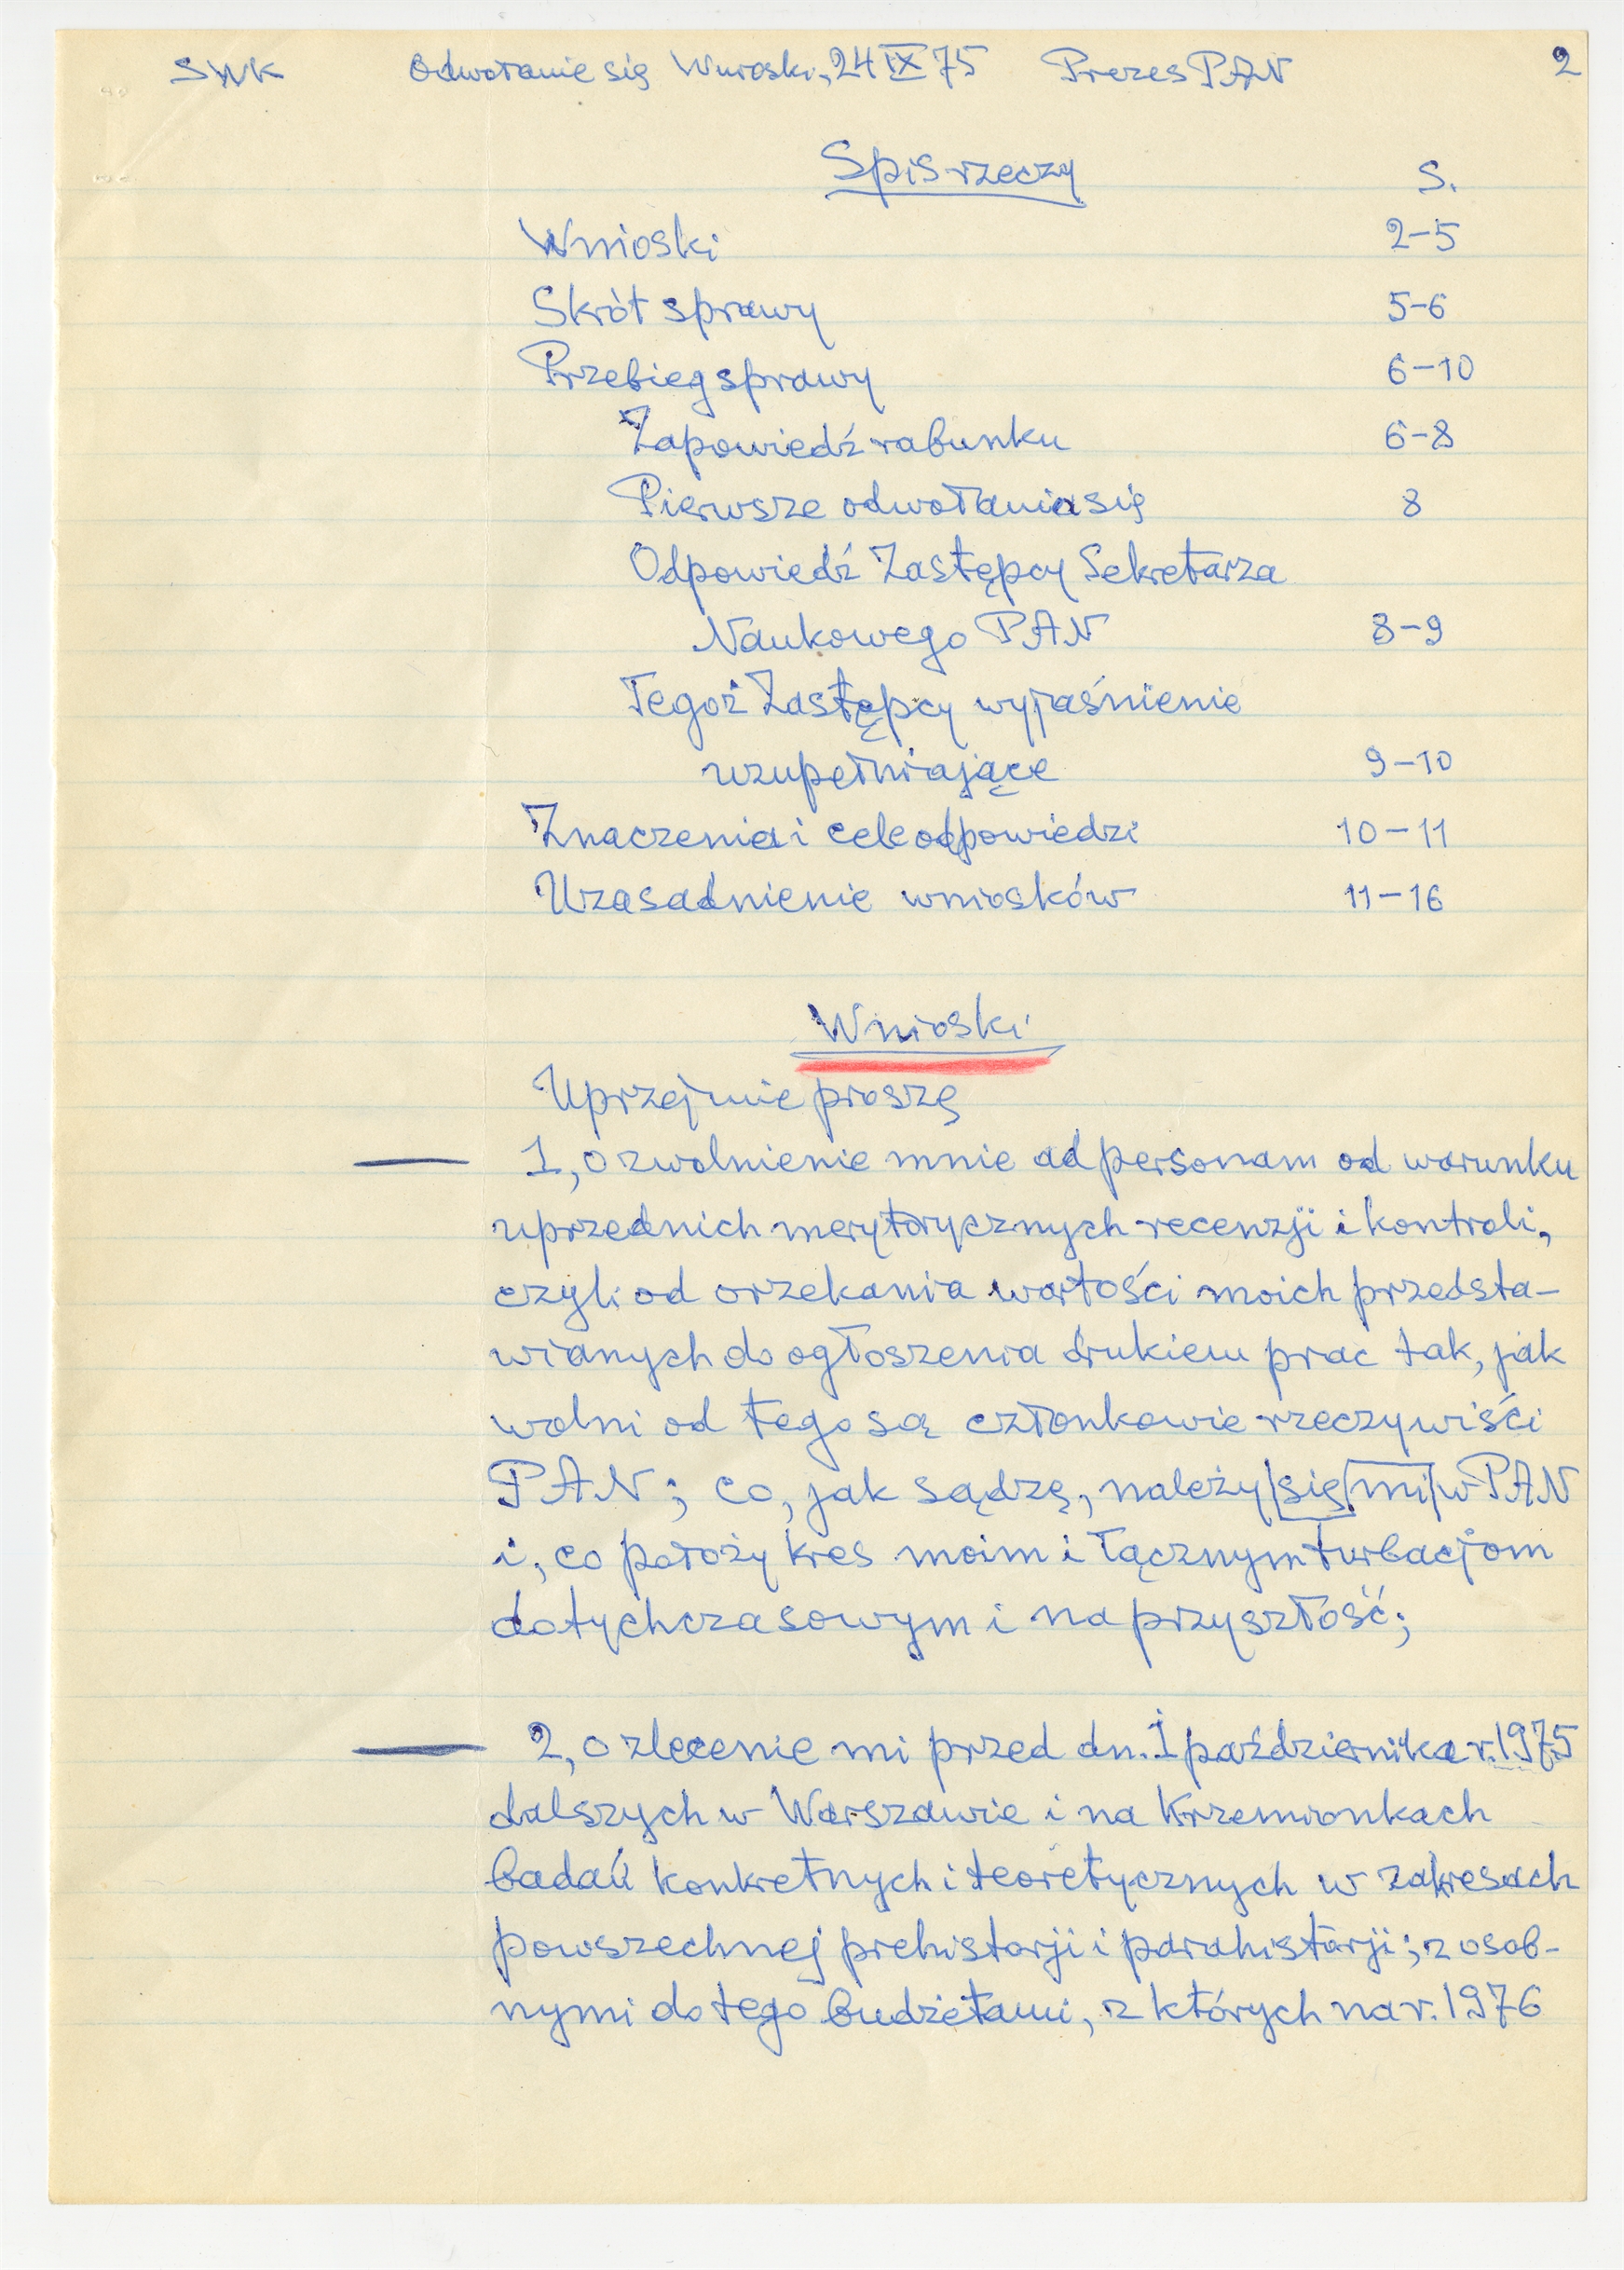 SWK Odwołanie się Wnioski, 24 IX 75 Prezes PAN 2
Spis rzeczy S.
Wnioski 2-5
Skrót sprawy 5-6
Przebieg sprawy 6-10
Zapowiedź rabunku 6-8
Pierwsze odwołania się 8
Odpowiedź Zastępcy Sekretarza
Naukowego PAN 8-9
Tegoż Zastępcy wyjaśnienie
uzupełniające 9-10
Znaczenia i cele odpowiedzi 10-11
Uzasadnienie wniosków 11-16
Wnioski
Uprzejmie proszę
1, o zwolnienie mnie ad personam od warunku
uprzednich merytorycznych recenzji i kontroli,
czyli od orzekania wartości moich przedsta-
wianych do ogłoszenia drukiem prac tak, jak
wolni od tego są członkowie rzeczywiści
PAN; co, jak sądzę, należy się mi w PAN
i, co położy kres moim i łącznym turbacjom
dotychczasowym i na przyszłość;
2, o zlecenie mi przed dn. 1 października r. 1975
dalszych w Warszawie i na Krzemionkach
badań konkretnych i teoretycznych w zakresach
powszechnej prehistorji i parahistorji; z osob-
nymi do tego budżetami, z których na r. 1976